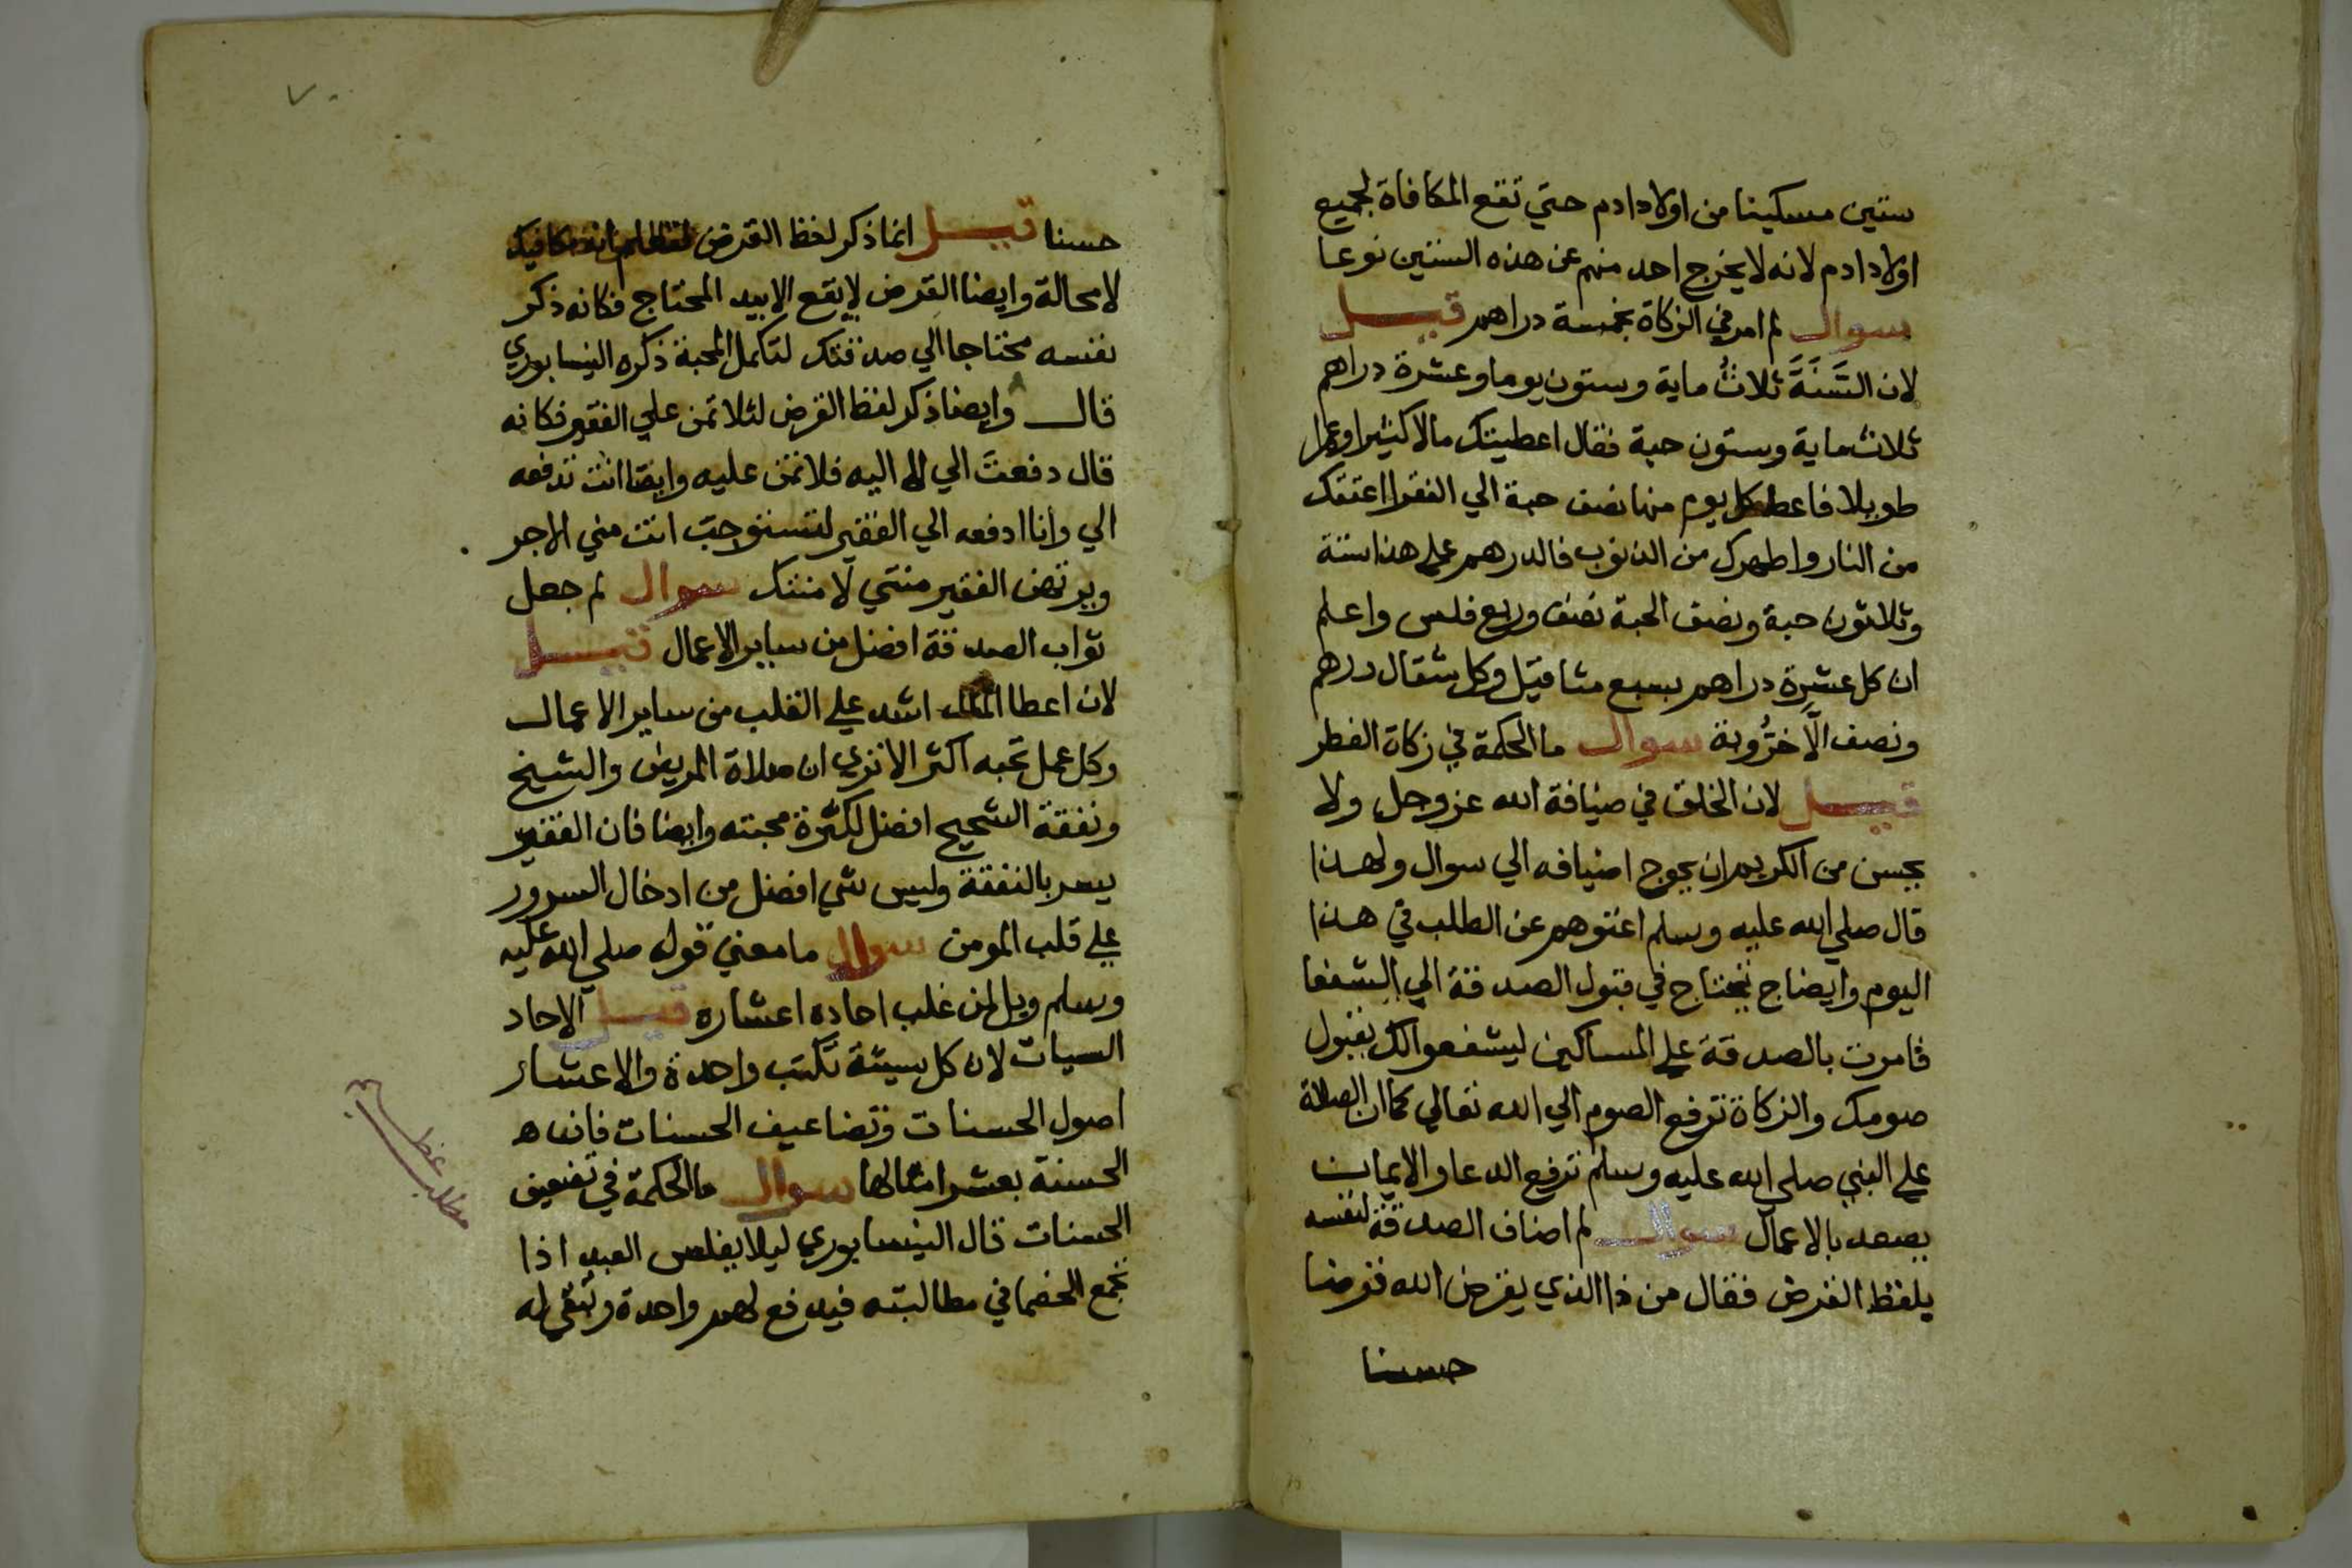 ستين مسكينا من اولاد ادم حتي تقع المكافاة لجميع
اولاد ادم لانه لا يخرج احد منهم عن هذه الستين نوعا
سوال لم امر في الزكاة بخمسة دراهم قيل
لان السَّنَةَ ثلاثُ ماية وستون يوما وعشرة دراهم
ثلاث ماية وستون حبة فقال اعطيتك مالا كثيرا وعمرا
طويلا فاعط كل يوم منها نصف حبة الي الفقرا اعتقك
من النار واطهرك من الذنوب فالدرهم علي هذا ستة
وثلاثون حبة ونصف الحبة نصف وربع فلس واعلم
ان كل عشرة دراهم بسبع مثاقيل وكل مثقال درهم
ونصف الَّا خرُّوبة سوال ما الحكمة في زكاة الفطر
قيل لان الخلق في ضيافة الله عز وجل ولا
يحسن من الكريم ان يحوج اضيافه الي سوال ولهذا
قال صلي الله عليه وسلم اغنوهم عن الطلب في هذا
اليوم وايضا تحتاج في قبول الصدقة الي الشفعا
فامرت بالصدقة علي المساكين ليشفعوا لك بقبول
صومك والزكاة ترفع الصوم الي الله تعالي كما ان الصلاة
علي النبي صلي الله عليه وسلم ترفع الدعا والايمان
يصعد بالاعمال سوال لم اضاف الصدقة لنفسه
بلفظ القرض فقال من ذا الذي يقرض الله قرضا
حسنا
حسنا قيل انما ذكر لفظ القرض
لا محالة وايضا القرض لا يقع الا بيد المحتاج فكانه ذكر
نفسه محتاجا الي صدقتك لتكمل المحبة ذكره النيسابوري
قال وايضا ذكر لفظ القرض لئلا تمن علي الفقير فكانه
قال دفعتَ الي لا اليه فلا تمن عليه وايضا انت تدفعه
الي وانا ادفعه الي الفقير لتستوجب انت مني الاجر
ويرتهن الفقير منتي لا منتك سوال لم جعل
ثواب الصدقة افضل من ساير الاعمال قيل
لان اعطا المال اشد علي القلب من ساير الاعمال
وكل عمل تحبه اكثر الا تري ان صلاة المريض والشيخ
ونفقة الشحيح افضل لكثرة محبته وايضا فان الفقير
يسر بالنفقة وليس شي افضل من ادخال السرور
علي قلب المومن سوال ما معني قوله صلي الله عليه
وسلم ويل لمن غلب احاده اعشاره قيل الاحاد
السيات لان كل سيئة تكتب واحدة والاعشار
اصول الحسنات وتضاعيف الحسنات فان
الحسنة بعشر امثالها سوال ما الحكمة في تضعيف
الحسنات قال النيسابوري ليلا يفلس العبد اذا
تجمع الخصما في مطالبته فيدفع لهم واحدة وتبقي له
مطلب